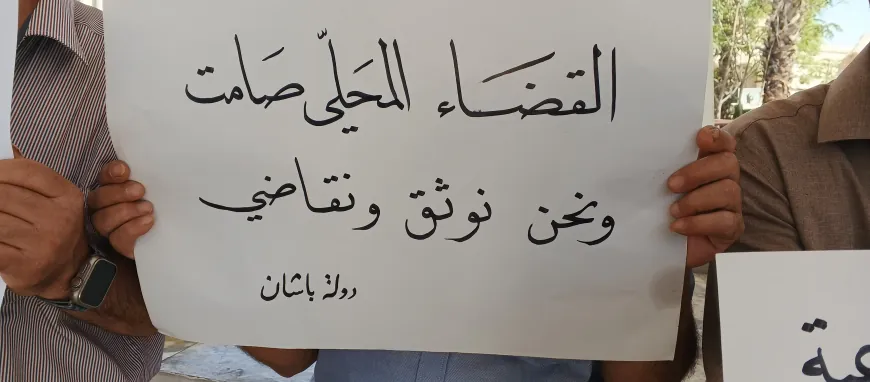 القضاء المحلّي صامت
ونحن نوثق ونقاضي
دولة باشان